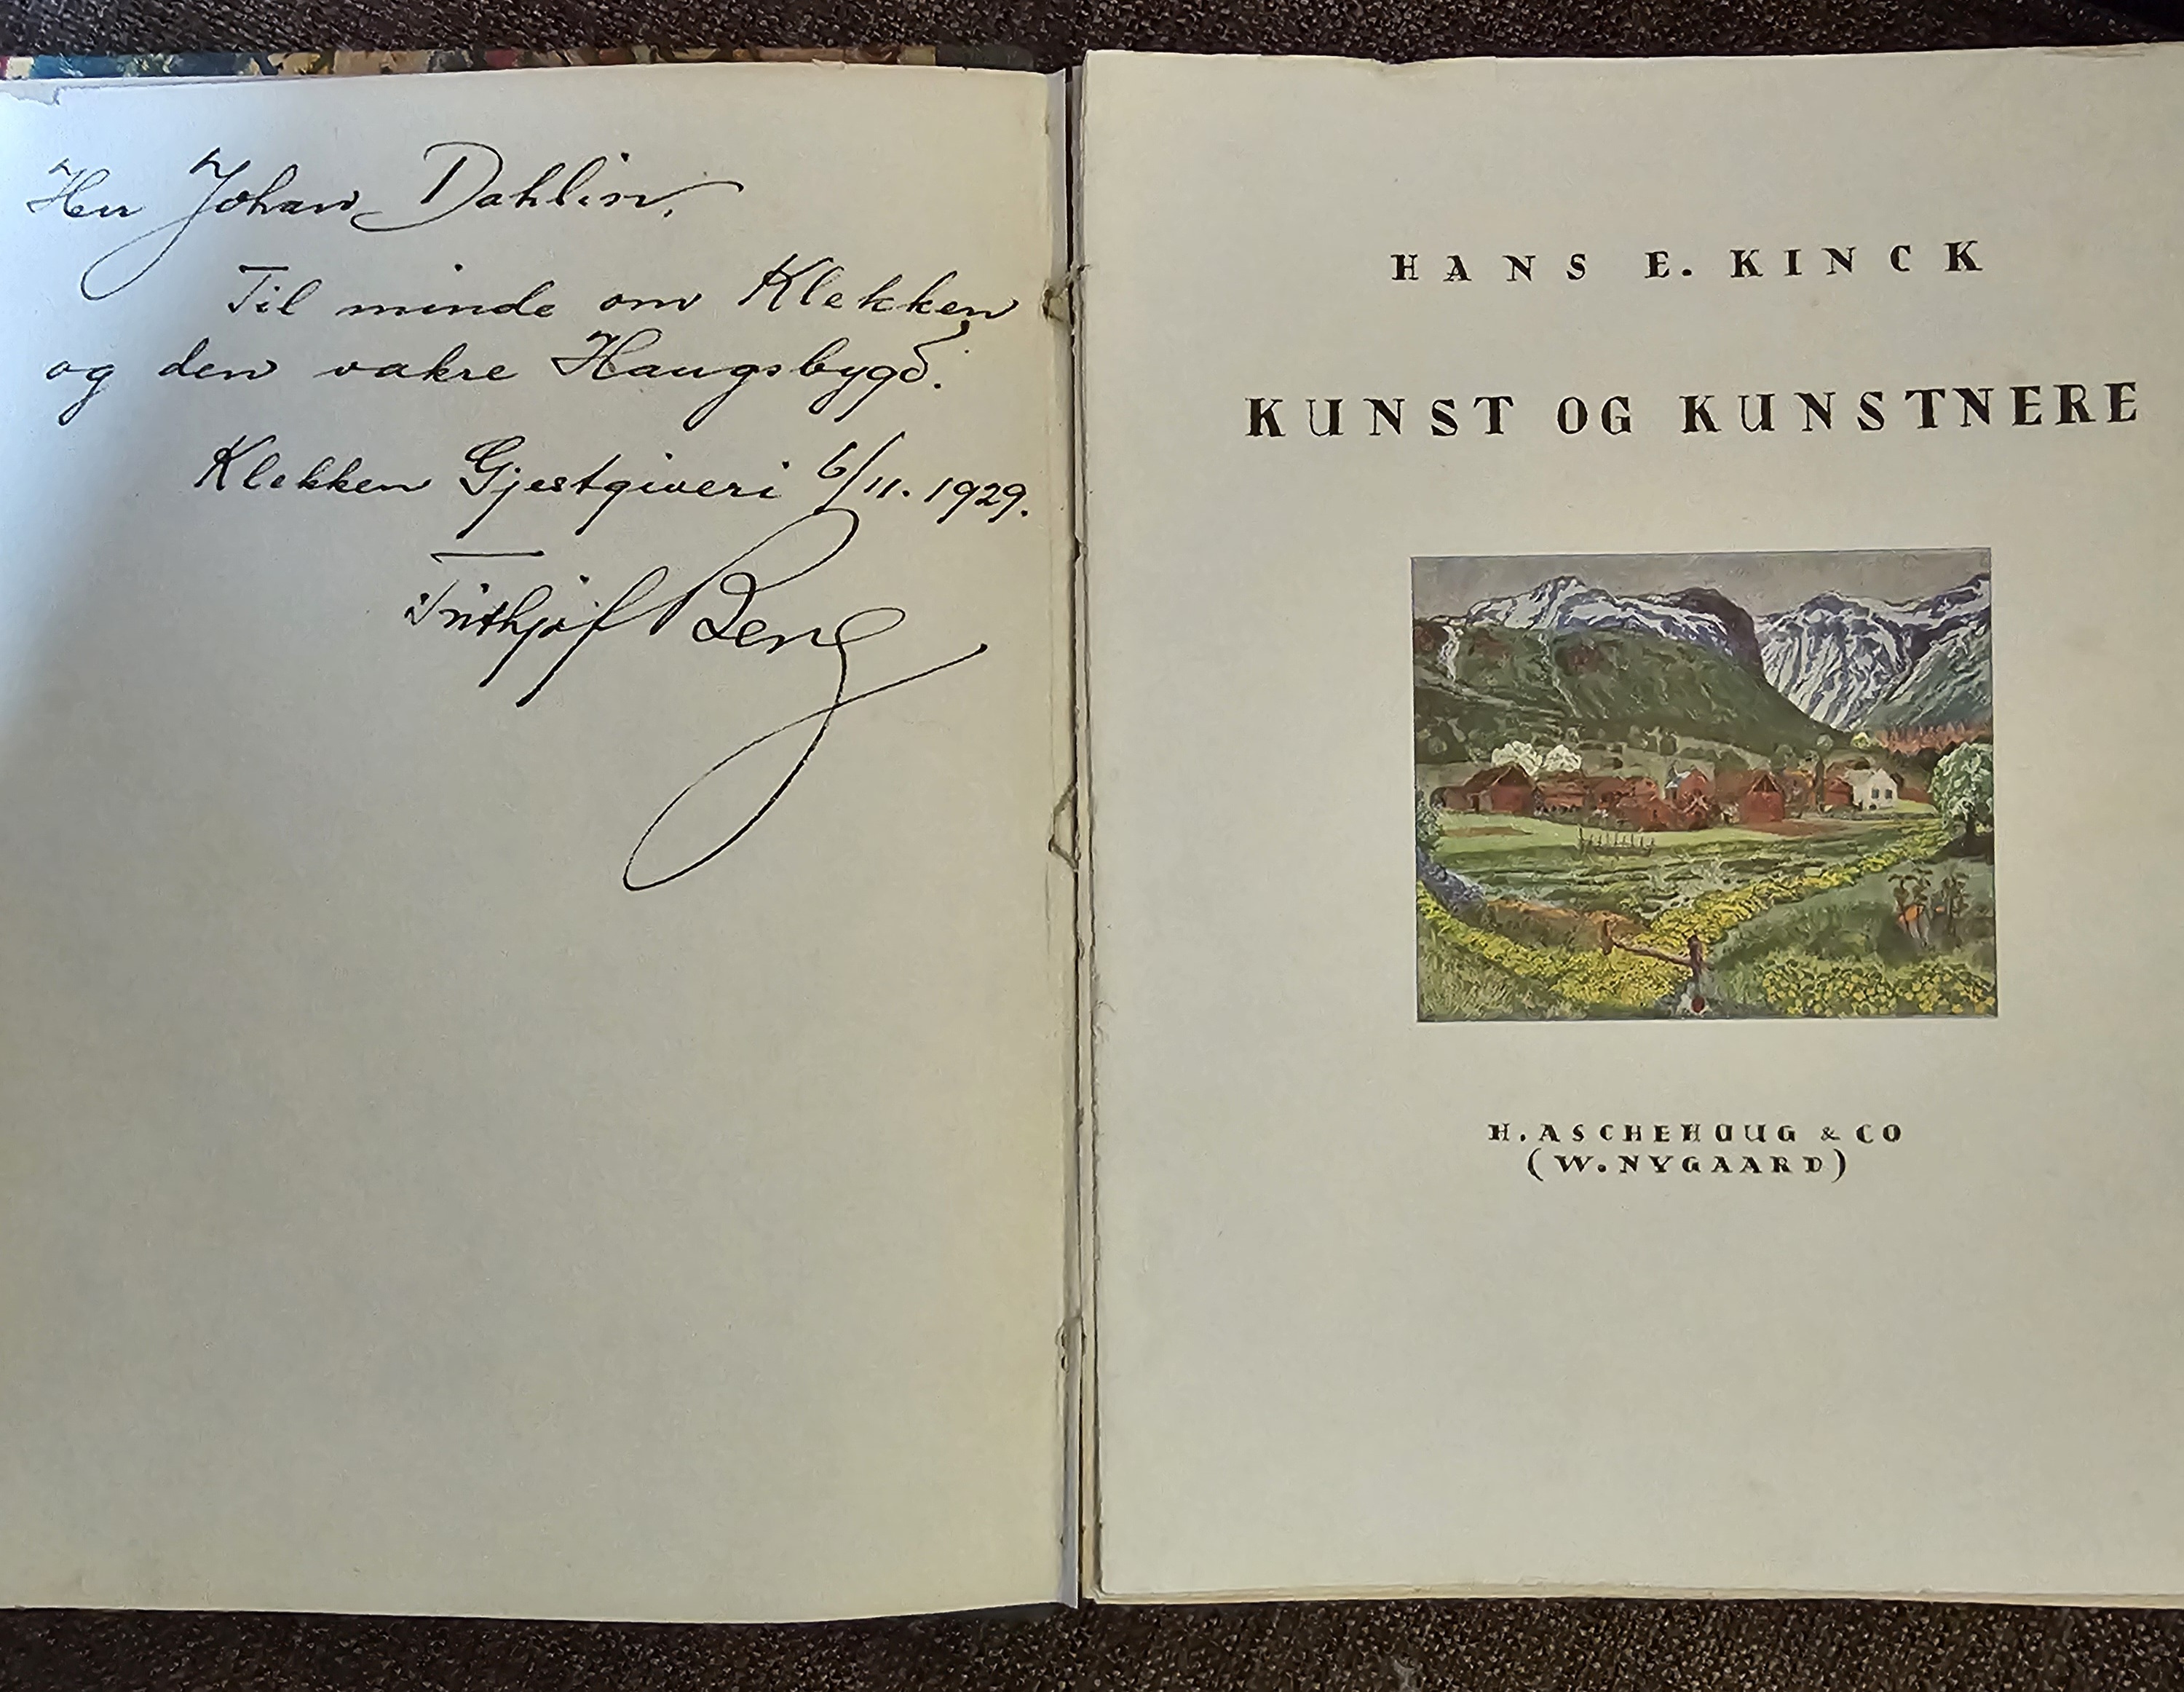 Herr Johan Dahlin,
Til minde om Klekken
og den vakre Haugsbygd.
Klekken Gjestgiveri 6/11. 1929.
Frithjof Berg
HANS E. KINCK
KUNST OG KUNSTNERE
H. ASCHEHOUG & CO
(W. NYGAARD)